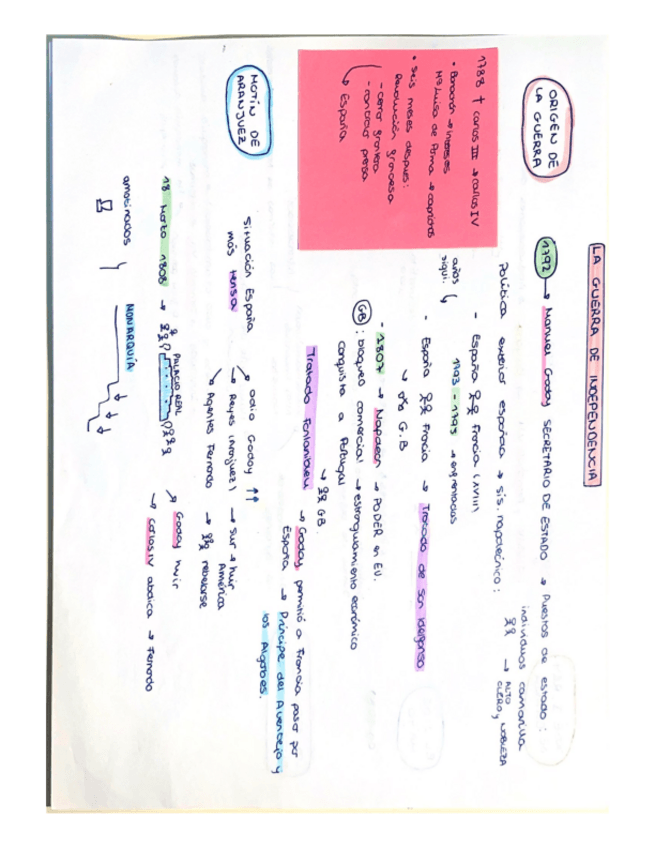 LA GUERRA DE INDEPENDENCIA
ORIGEN DE
LA GUERRA
1792 → Manuel Godoy SECRETARIO DE ESTADO → Puestos de estado:
individuos camarilla
→ ALTO
CLERO, NOBLEZA
Política exterior española → sis. napoleónico:
1788 † Carlos III → Carlos IV
• Borbón → intereses
Mª Luisa de Parma → caprichos
• Seis meses después:
Revolución francesa
- cerrar frontera
- controlar prensa
España
años
sigui.
- España Francia (XVIII)
1793 - 1795 → enfrentados
- España Francia → Tratado de San Ildefonso
→ G.B
- 1807 → Napoleón → PODER en EU.
GB: bloqueo comercial → estrangulamiento económico
conquista a Portugal
→ GB.
Tratado Fontainbleu → Godoy permitió a Francia pasar por
España → Príncipe del Alventejo y
los Algarbes.
MOTÍN DE
ARANJUEZ
Situación España
más tensa
odio Godoy ↑↑
→ Reyes (Aranjuez) → sur → huir
América
Agentes Fernando → rebelarse
18 Marzo 1808 → PALACIO REAL
Godoy huir
→ Carlos IV abdica → Fernando
amotinados
MONARQUÍA